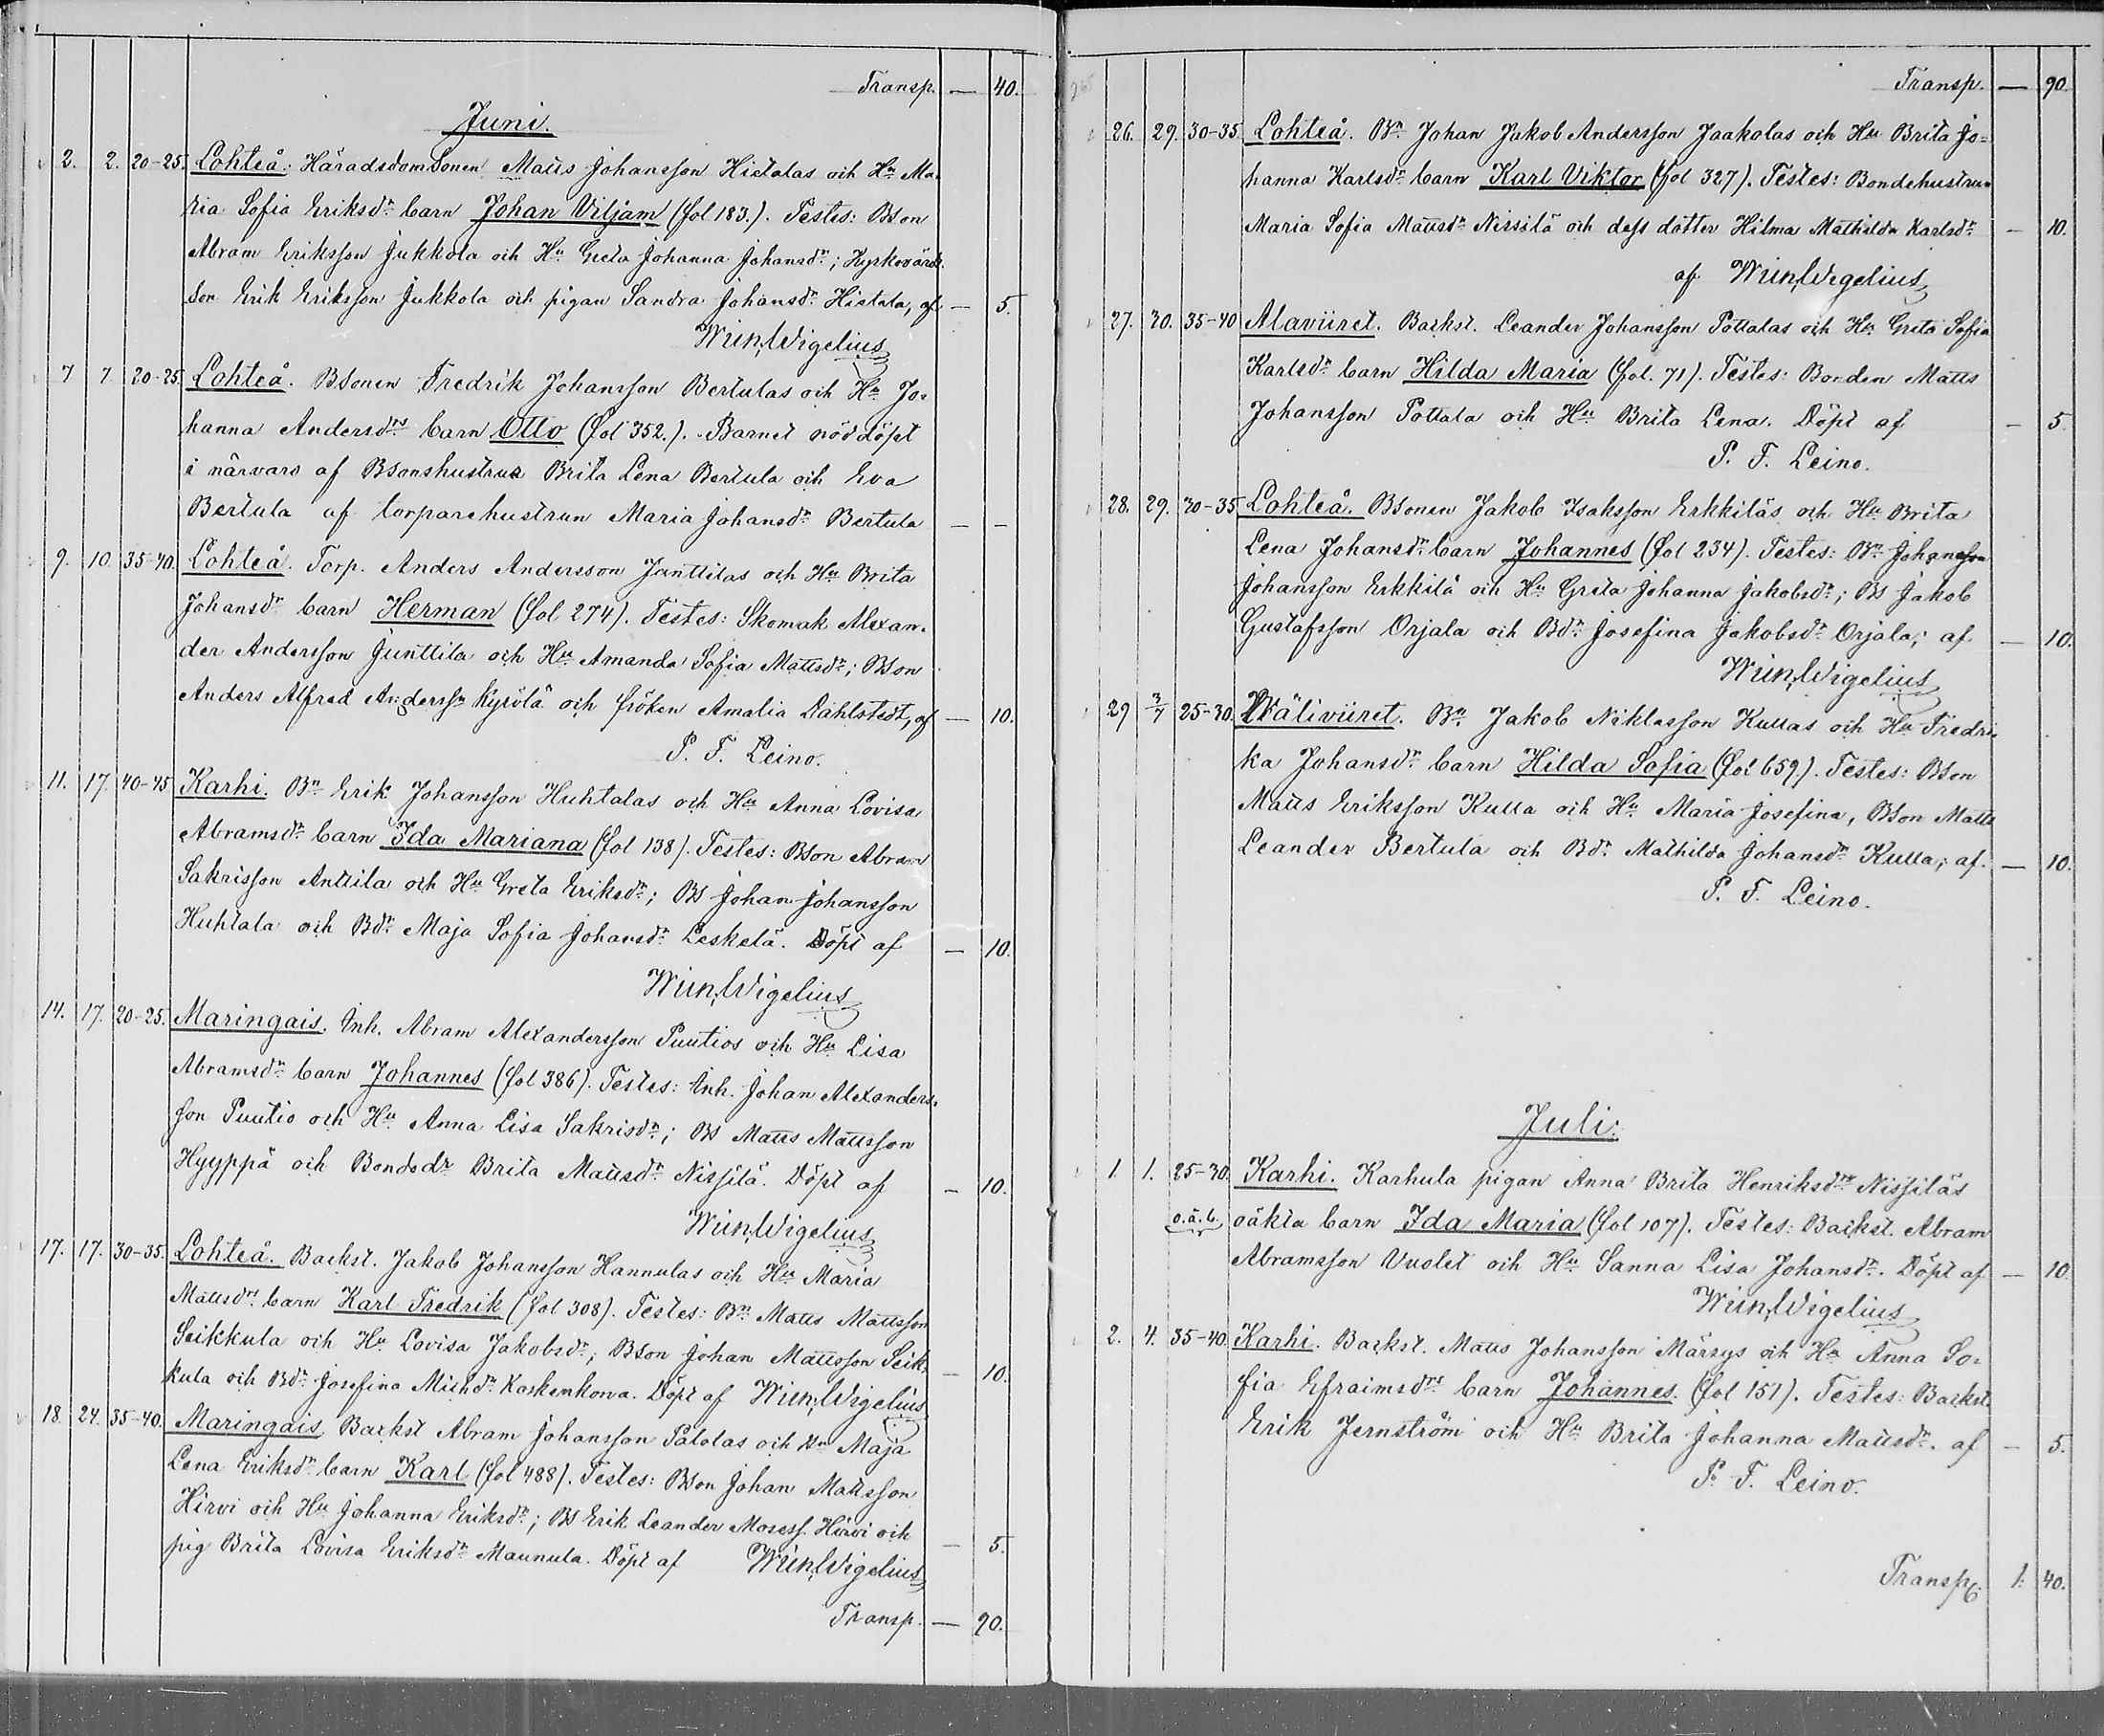 Transp. — 40.
Juni.
2. 2. 20-25. Lohteå: Häradsdomsonen Matts Johansson Hietalas och Hu Ma-
ria Sofia Eriksdr barn Johan Viljam (fol 183.). Testes: Bson
Abram Eriksson Jukkola och Hu Greta Johanna Johansdr; Kyrkovärds
son Erik Eriksson Jukkola och pigan Sandra Johansdr Hietala, af — 5.
Wm Wigelius
7 7 20-25. Lohteå. Bsonen Fredrik Johansson Bertulas och Hu Jo-
hanna Andersdrs barn Otto (fol 352.). Barnet nöddöpt
i närvaro af Bsonshustrua Brita Lena Bertula och Eva
Bertula af torparehustrun Maria Johansdr Bertula — —
9. 10 35-40. Lohteå. Torp. Anders Andersson Junttilas och Hu Brita
Johansdr barn Herman (fol 274). Testes: Skomak Alexan-
der Andersson Junttila och Hu Amanda Sofia Mattsdr; Bson
Anders Alfred Anderssn och fröken Amalia Dahlstedt, af — 10.
P. F. Leino.
11. 17. 40-45 Karhi. Bn Erik Johansson Huhtalas och Hu Anna Lovisa
Abramsdr barn Ida Mariana (fol 138). Testes: Bson Abram
Sakrisson Anttila och Hu Greta Eriksdr; Bs Johan Johansson
Huhtala och Bdr Maja Sofia Johansdr Leskelä. Döpt af — 10.
Wm Wigelius
14. 17. 20-25. Maringais. Inh. Abram Alexandersson Puutios och Hu Lisa
Abramsdr barn Johannes (fol 386). Testes: Inh. Johan Alexanders-
son Puutio och Hu Anna Lisa Sakrisdr; Bs Matts Mattsson
Hyyppä och Bondedr Brita Mattsdr Nissilä. Döpt af — 10.
Wm Wigelius
17. 17. 30-35. Lohteå. Backst. Jakob Johansson Hannulas och Hu Maria
Mattsdrs barn Karl Fredrik (fol 308). Testes: Bn Matts Mattsson
Seikkula och Hu Lovisa Jakobsdr; Bson Johan Mattsson Seik-
kula och Bdr Josefina Michdr Koskenkorva. Döpt af Wm Wigelius — 10.
18. 24. 35-40. Maringais Backst Abram Johansson Palolas och Hu Maja
Lena Eriksdr barn Karl (fol 488). Testes: Bson Johan Mattsson
Hirvi och Hu Johanna Eriksdr; Bs Erik Leander Mosess. Hirvi och
pig Brita Lovisa Eriksdr Maunula. Döpt af Wm Wigelius — 5.
Transp. — 90.
265
Transp. — 90
26. 29. 30-35. Lohteå. Bn Johan Jakob Andersson Jaakolas och Hu Brita Jo-
hanna Karlsdr barn Karl Viktor (fol 327). Testes: Bondehustrun
Maria Sofia Mattsdr Nissilä och dess dotter Hilma Mathilda Karlsdr — 10.
af Wm Wigelius
27. 30. 35-40 Alaviiret. Backst. Leander Johansson Pottalas och Hu Greta Sofia
Karlsdr barn Hilda Maria (fol. 71). Testes: Bonden Matts
Johansson Pottala och Hu Brita Lena. Döpt af — 5.
P. F. Leino.
28. 29. 30-35 Lohteå. Bsonen Jakob Isaksson Erkkiläs och Hu Brita
Lena Johansdr barn Johannes (fol 234). Testes: Bn Johansson
Johansson Erkkilä och Hu Greta Johanna Jakobsdr; Bs Jakob
Gustafsson Orjala och Bdr Josefina Jakobsdr Orjala; af — 10.
Wm Wigelius
29 3/7 25-30. Wäliviiret. Bn Jakob Niklasson Kullas och Hu Fredri-
ka Johansdr barn Hilda Sofia (fol 659.). Testes: Bson
Matts Eriksson Kulla och Hu Maria Josefina, Bson Matts
Leander Bertula och Bdr Mathilda Johansdr Kulla; af. — 10.
P. F. Leino.
Juli:
1. 1. 25-30. Karhi. Karhula pigan Anna Brita Henriksdrs Nissiläs
o.ä.b. oäkta barn Ida Maria (fol 107). Testes: Backst. Abram
Abramsson Vuolet och Hu Sanna Lisa Johansdr. Döpt af — 10
Wm Wigelius
2. 4. 35-40. Karhi. Backst. Matts Johansson Märsys och Hu Anna So-
fia Efraimsdrs barn Johannes (fol 151). Testes: Backst.
Erik Jernström och Hu Brita Johanna Mattsdr. af — 5.
P. F. Leino.
Transp. 1. 40.